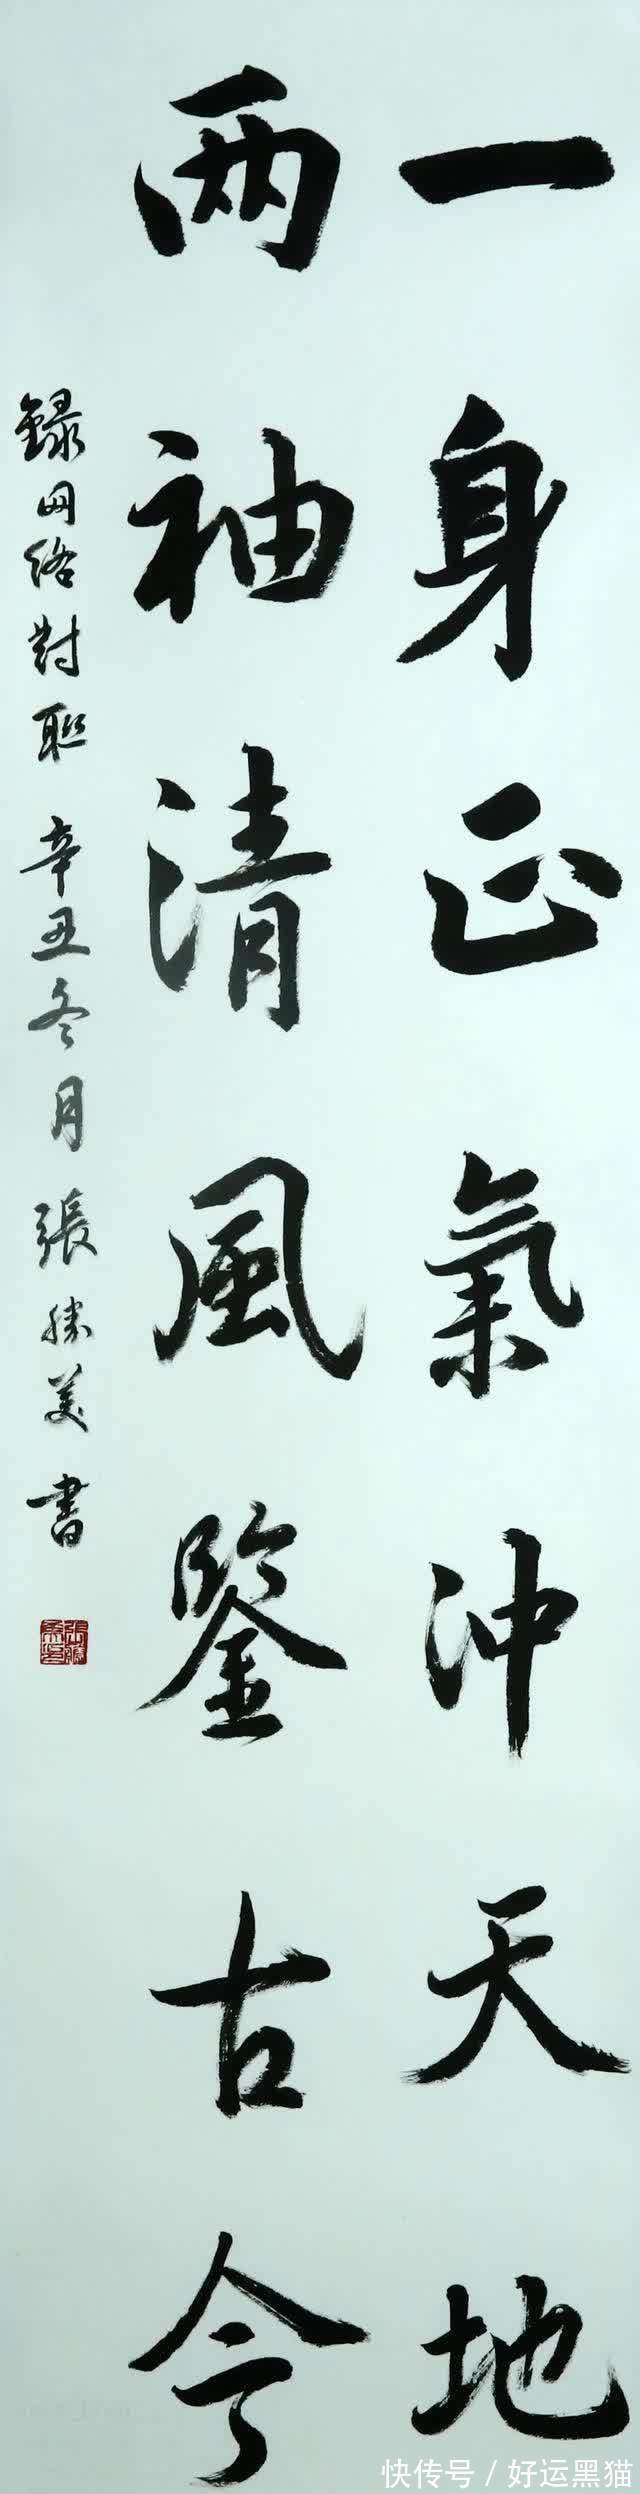 一身正氣沖天地
兩袖清風鑒古今
録网络對聯辛丑冬月張勝美書
快传号/好运黑猫